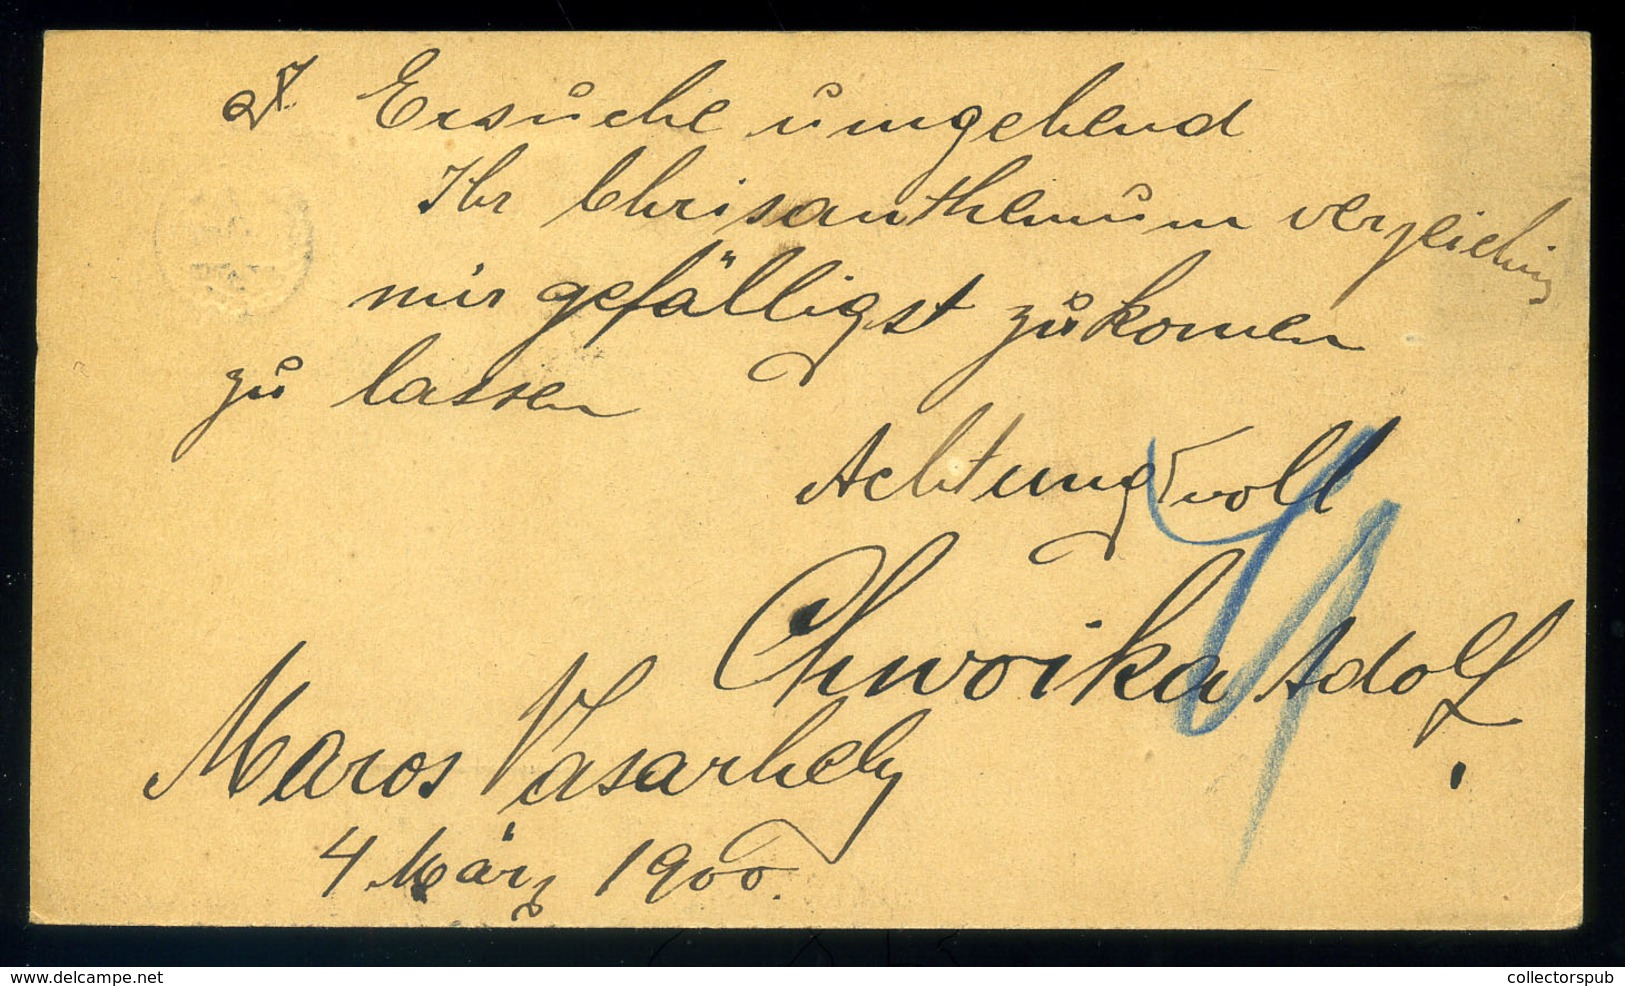 Ersuche umgehend
Ihr Chrisanthemum verzeichniss
mir gefälligst zukomen
zu lassen
Achtungsvoll
Chwoika Adolf
Maros Vasarhely
4 März 1900.
www.delcampe.net
collectorspub